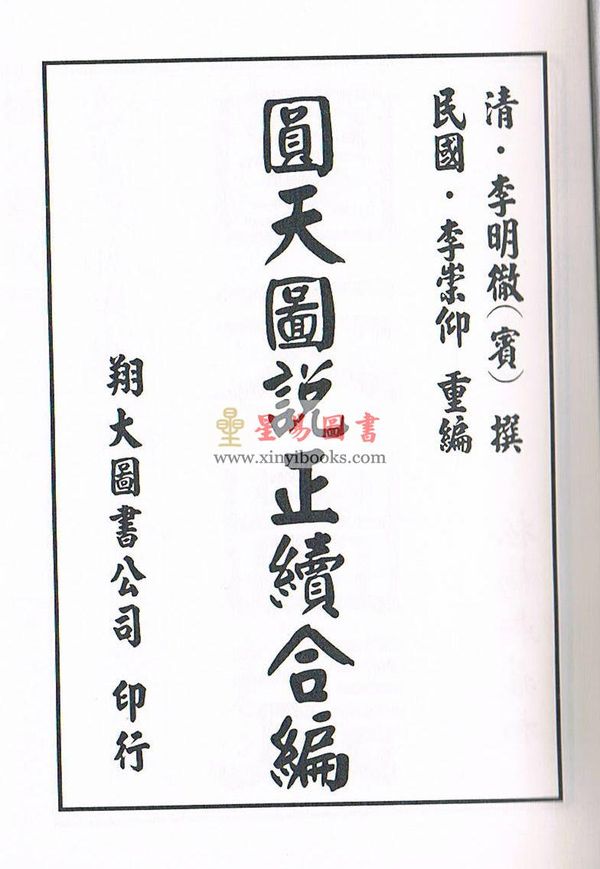 清・李明徹(賓) 撰
民國・李崇仰 重編
圓天圖說正續合編
翔大圖書公司 印行
星易圖書
www.xinyibooks.com